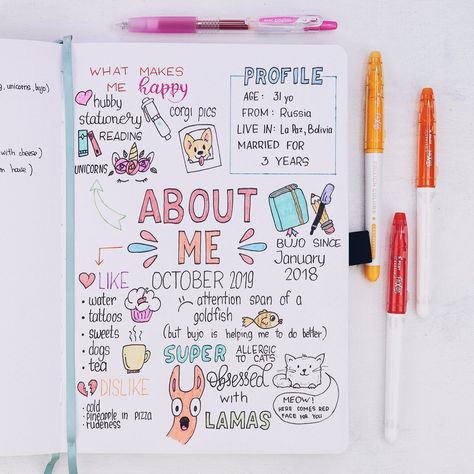 unicorns, bujo)
with cheese)
WHAT MAKES
ME happy
hubby
stationery
READING
corgi pics
UNICORNS
PROFILE
AGE: 31 yo
FROM: Russia
LIVE IN: La Paz, Bolivia
MARRIED FOR
3 YEARS
ABOUT
ME
BUJO SINCE
January
2018
OCTOBER 2019
LIKE
• water
• tattoos
• sweets
• dogs
• tea
attention span of a
goldfish
(but bujo is helping me to do better)
SUPER ALLERGIC
TO CATS
DISLIKE
• cold
• pineapple in pizza
• rudeness
Obsessed
with
LAMAS
MEOW!
HERE COMES RED
FACE FOR YOU